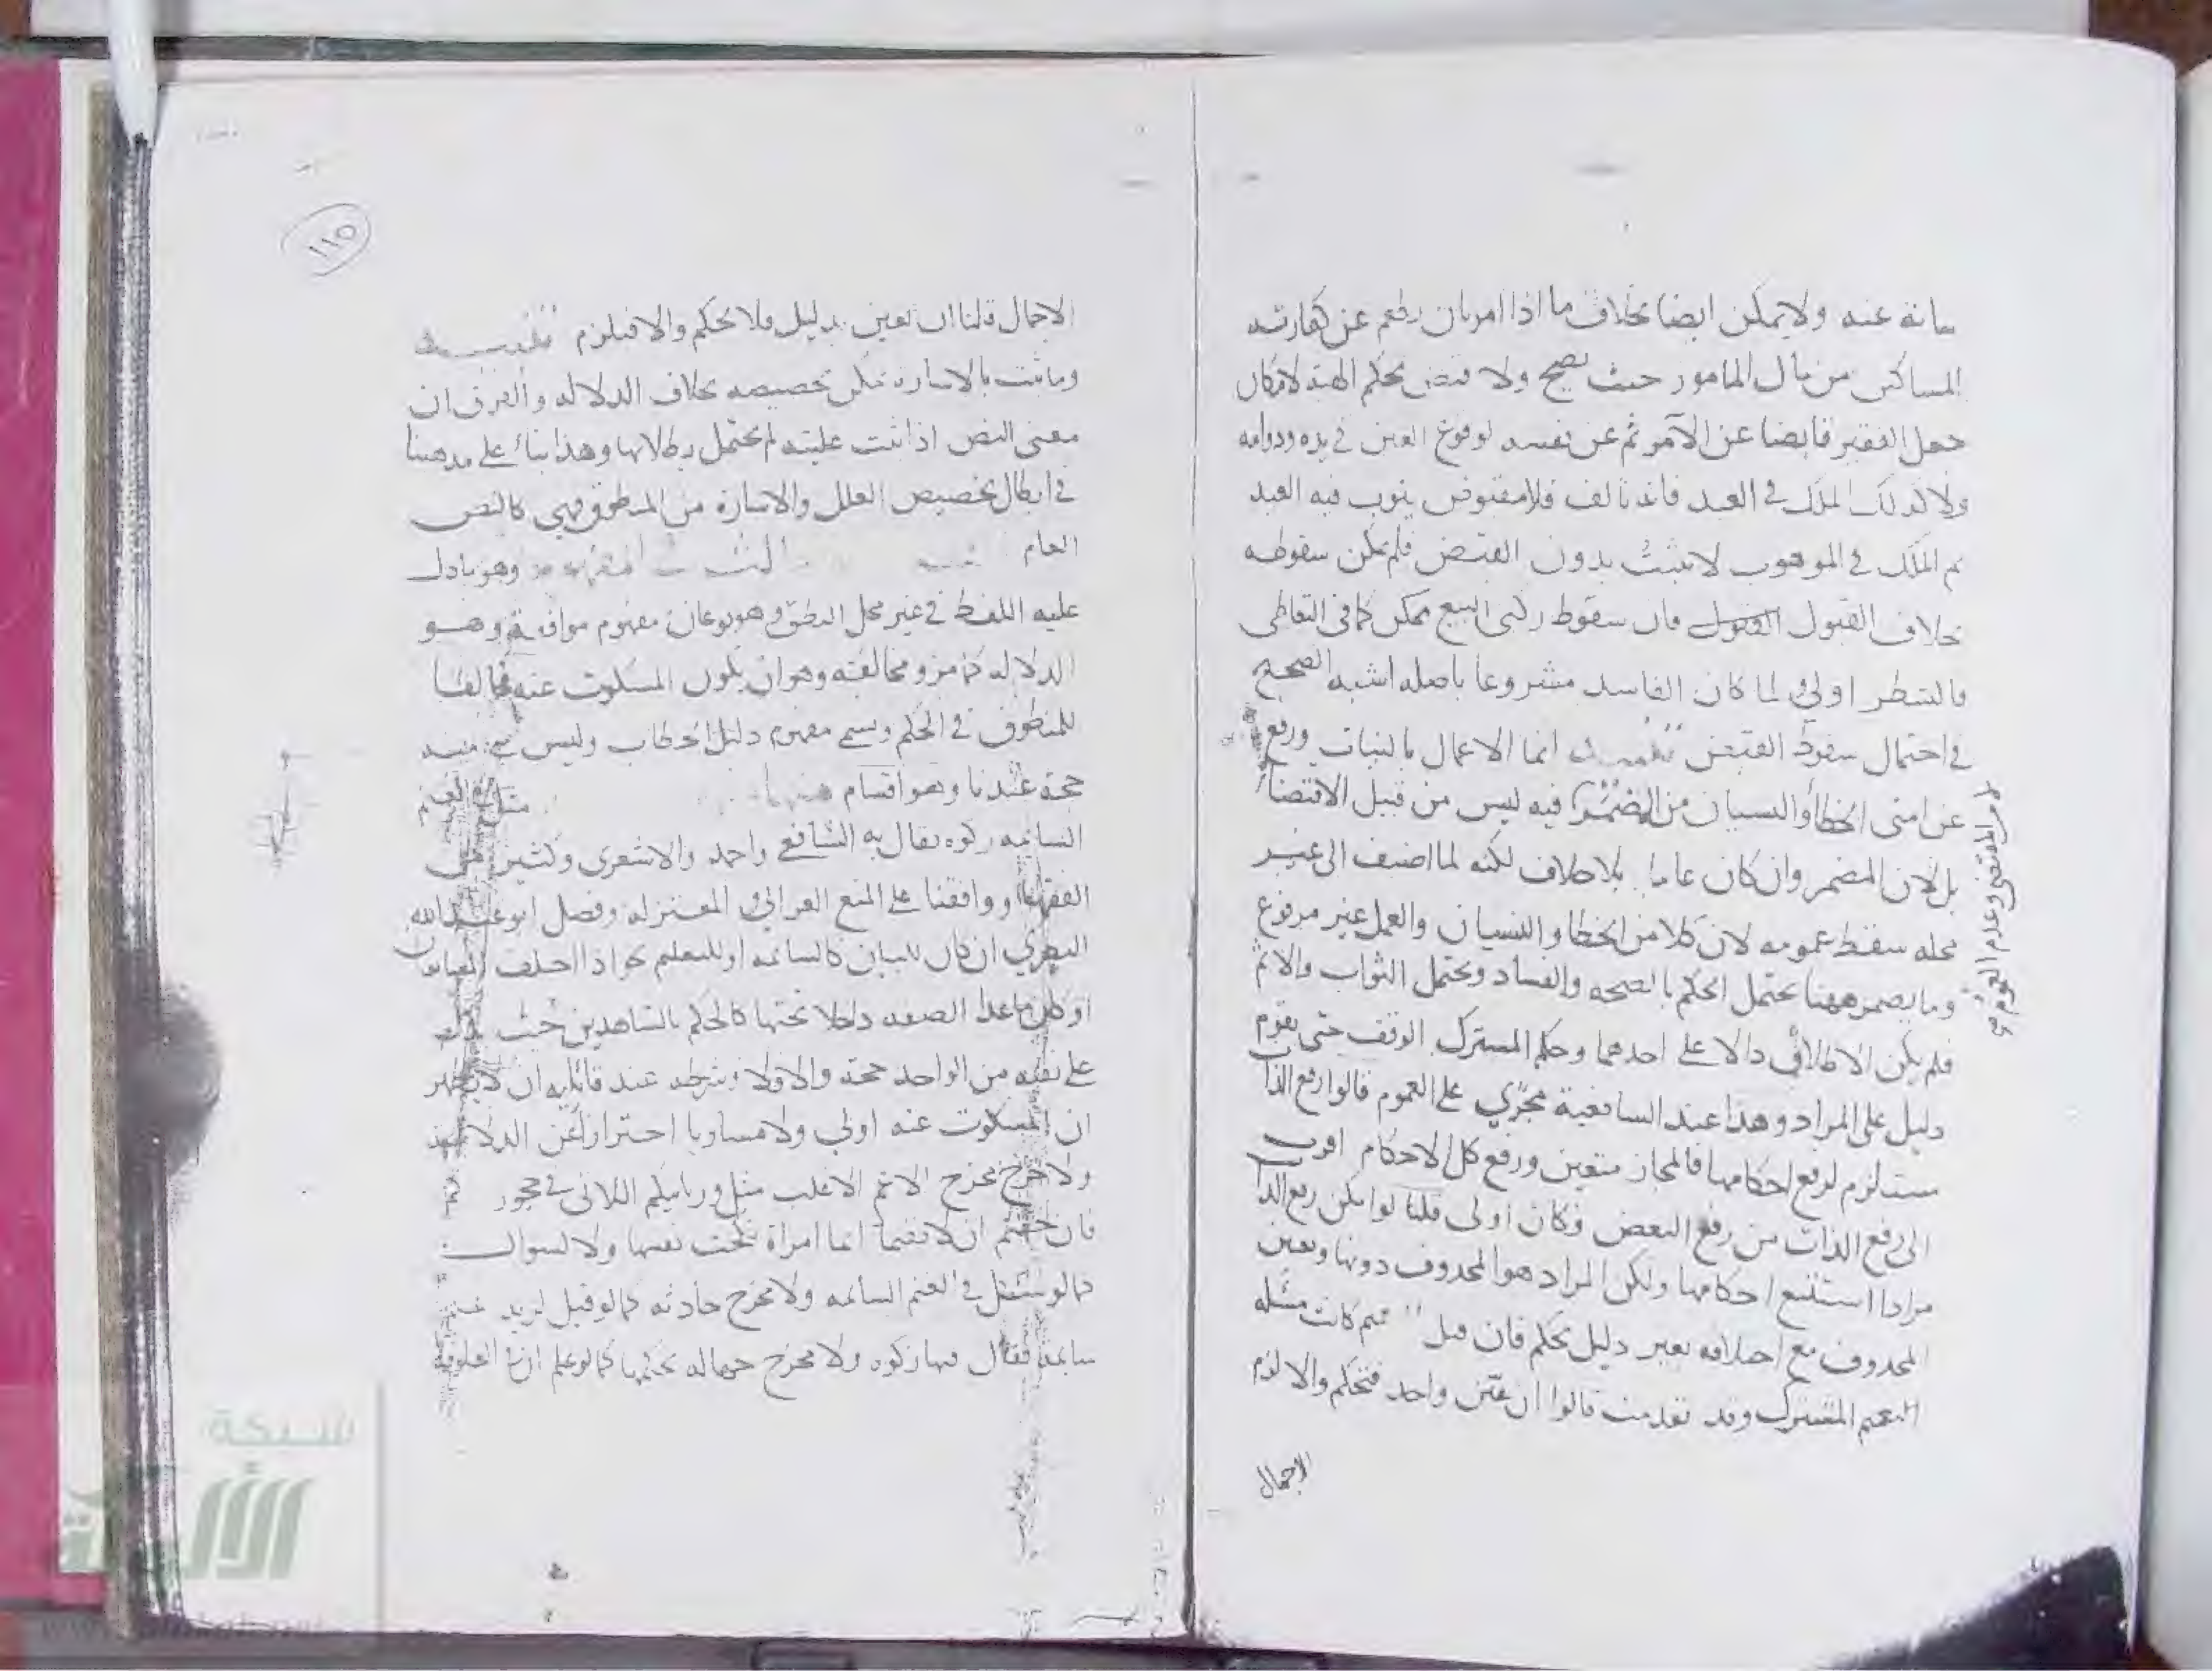 عنه ولا يمكن ايضا بخلاف ما اذا امر بان يطعم عن كفارته
المساكين من مال المامور حيث يصح ولا قبض بحكم الهبة لامكان
جعل الفقير قابضا عن الآمر ثم عن نفسه لوقوع العين في يده ودوامه
ولا كذلك الملك في العبد فانه تالف فلا مقبوض ينوب فيه العبد
ثم الملك في الموهوب لا يثبت بدون القبض فلم يمكن سقوطه
بخلاف القبول فان سقوط ركني البيع ممكن كما في التعاطي
فالشطر اولى ولما كان الفاسد مشروعا باصله اشبه الصحيح
في احتمال سقوط القبض تنبيه انما الاعمال بالنيات ورفع
عن امتي الخطأ والنسيان من المضمر فيه ليس من قبيل الاقتضا
لان المقتضى وعدم العموم في
بل لان المضمر وان كان عاما بلا خلاف لكنه لما اضيف الى غير
محله سقط عمومه لان كلا من الخطا والنسيان والعمل غير مرفوع
وما يضمر ههنا يحتمل الحكم بالصحه والفساد ويحتمل الثواب والاثم
فلم يكن الاطلاق دالا على احدهما وحكم المشترك الوقف حتى يقوم
دليل على المراد وهذا عند الشافعية مجرى على العموم قالوا رفع الذات
مستلزم لرفع احكامها فالمجاز متعين ورفع كل الاحكام اقرب
الى رفع الذات من رفع البعض وكان اولى قلنا لو امكن رفع الذات
مرادا استتبع احكامها ولكن المراد هو المحذوف دونها وتعين
المحذوف مع اختلافه بغير دليل تحكم فان قيل
المشترك وقد تقدمت قالوا ان عين واحد فتحكم والا لزم
الاجمال
١١٥
الاجمال قلنا ان تعين بدليل فلا تحكم والا فيلزم تنبيه
وما ثبت بالاشارة يمكن تخصيصه بخلاف الدلاله والفرق ان
معنى النص اذا ثبت عليته لم يحتمل بطلانها وهذا بناء على مذهبنا
في ابطال تخصيص العلل والاشارة من المنطوق فهي كالنص
العام وهو ما دل
عليه اللفظ في غير محل النطق وهو نوعان مفهوم موافقة وهو
الدلاله كما مر ومخالفة وهو ان يكون المسكوت عنه مخالفا
للمنطوق في الحكم ويسمى مفهوم دليل الخطاب وليس
حجة عندنا وهو اقسام منها
السائمه زكوه يقال به الشافعي واحمد والاشعرى وكثير من
الفقها ووافقنا على المنع الغزالي والمعتزله وفصل ابو عبد الله
البصري ان كان للبيان كالسائمه او للتعليم كاذا اختلف
او كان ما عدا الصفه داخلا تحتها كالحكم بالشاهدين حيث يدل
على نفيه من الواحد حجة والا فلا وشرطه عند قائليه ان لا يظهر
ان المسكوت عنه اولى ولا مساويا احترازا عن الدلاله
ولا خرج مخرج الاعم الاغلب مثل وربائبكم اللاتى في حجوركم
فان خفتم ان لا يقيما ايما امراة نكحت نفسها ولا لسوال
كما لو سئل في الغنم السائمه ولا مخرج حادثه كما لو قيل لزيد غنم
سائمة فقال فيها زكوه ولا مخرج جهاله بحكمها كما لو علم ان في العلوفة
شبكة
الألوكة